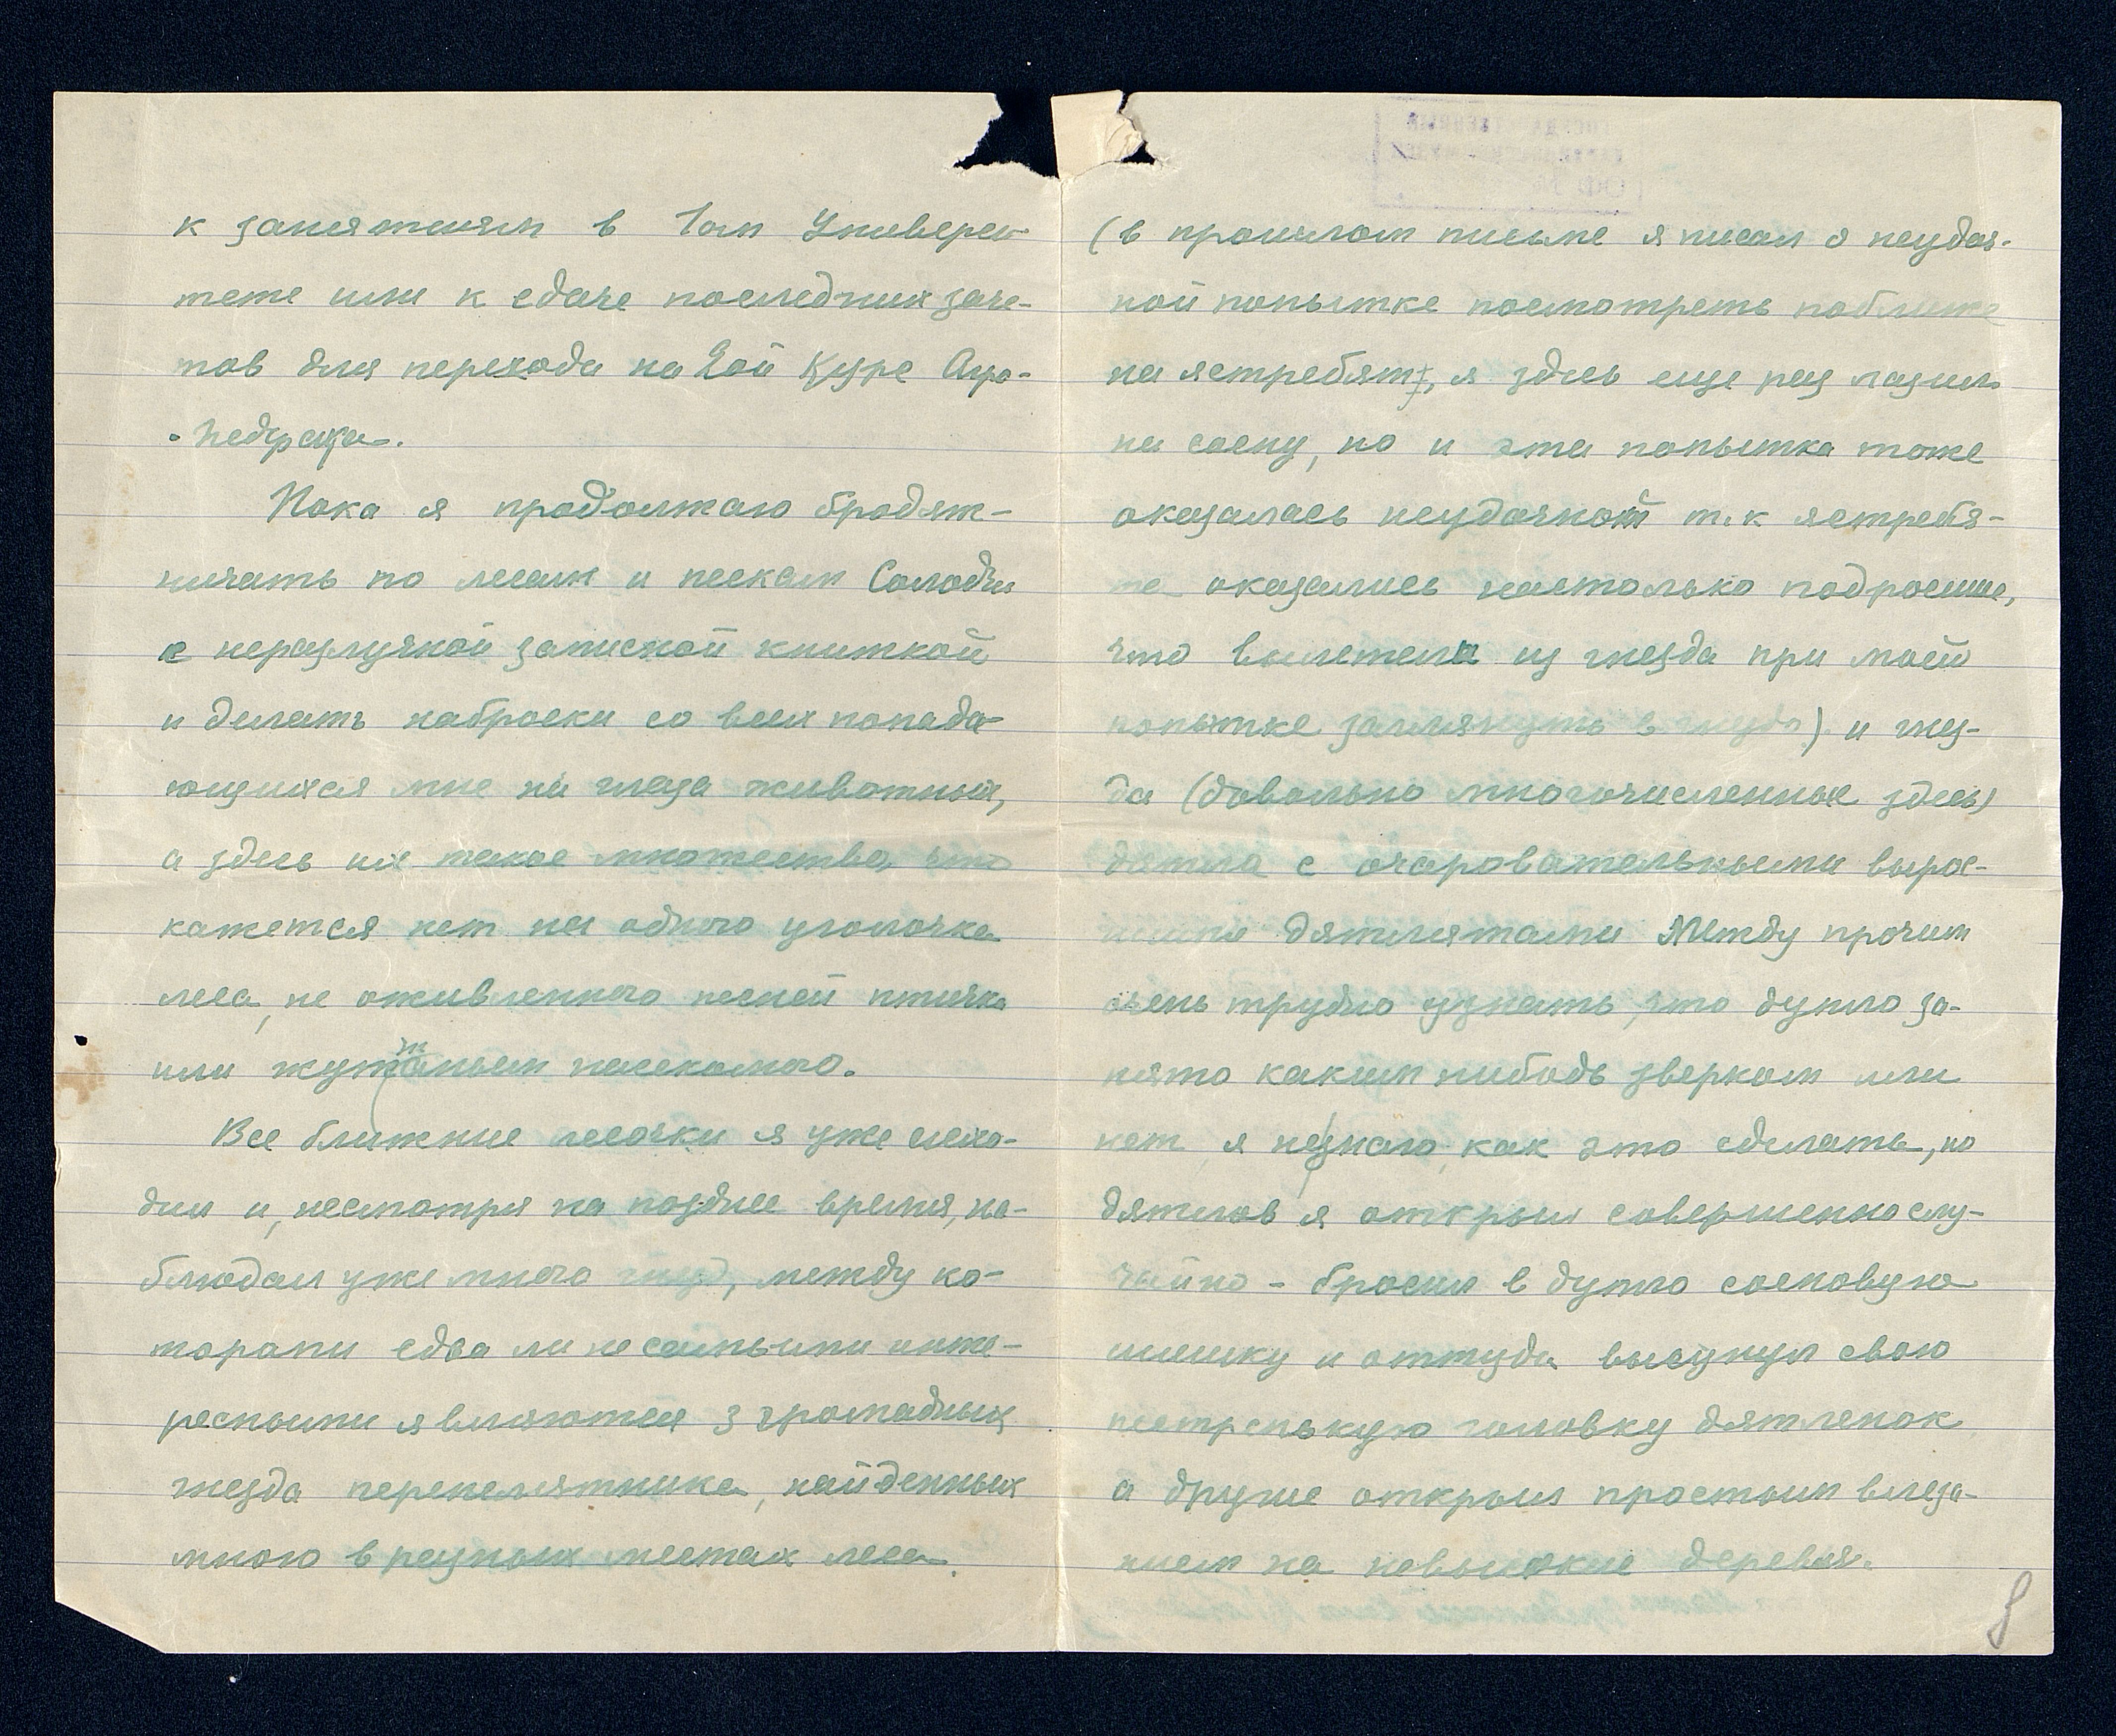 к занятиям в Гос Универси-
тете или к сдаче последних заче-
тов для перехода на 2ой курс Агро-
-педфака.
Пока я продолжаю бродяж-
ничать по лесам и пескам Солодчи
с неразлучной записной книжкой
и делать наброски со всех попада-
ющихся мне на глаза животных,
а здесь их такое множество, что
кажется нет ни одного уголочка
леса, не оживленного песней птички
или жужжаньем насекомого.
Все ближние лесочки я уже исхо-
дил и, несмотря на позднее время, на-
блюдал уже много гнезд, между ко-
торыми едва ли не самыми инте-
ресными являются 3 громадных
гнезда перепелятника, найденных
мною в разных местах леса.
(в прошлом письме я писал о неудач-
ной попытке посмотреть поближе
на ястребят, я здесь еще раз лазил
на сосну, но и эта попытка тоже
оказалась неудачной т.к ястребя-
та оказались настолько подросшие,
что вылетели из гнезда при моей
попытке заглянуть в гнездо) и гнез-
да (довольно многочисленные здесь)
дятла с очаровательными вырос-
шими дятлятами Между прочим
очень трудно узнать, что дупло за-
нято каким нибудь зверком или
нет, я незнаю, как это сделать, но
дятлов я открыл совершенно слу-
чайно - бросил в дупло сосновую
шишку и оттуда высунул свою
пестренькую головку дятленок
а другие открыл простым влеза-
нием на невысокие деревья.
8